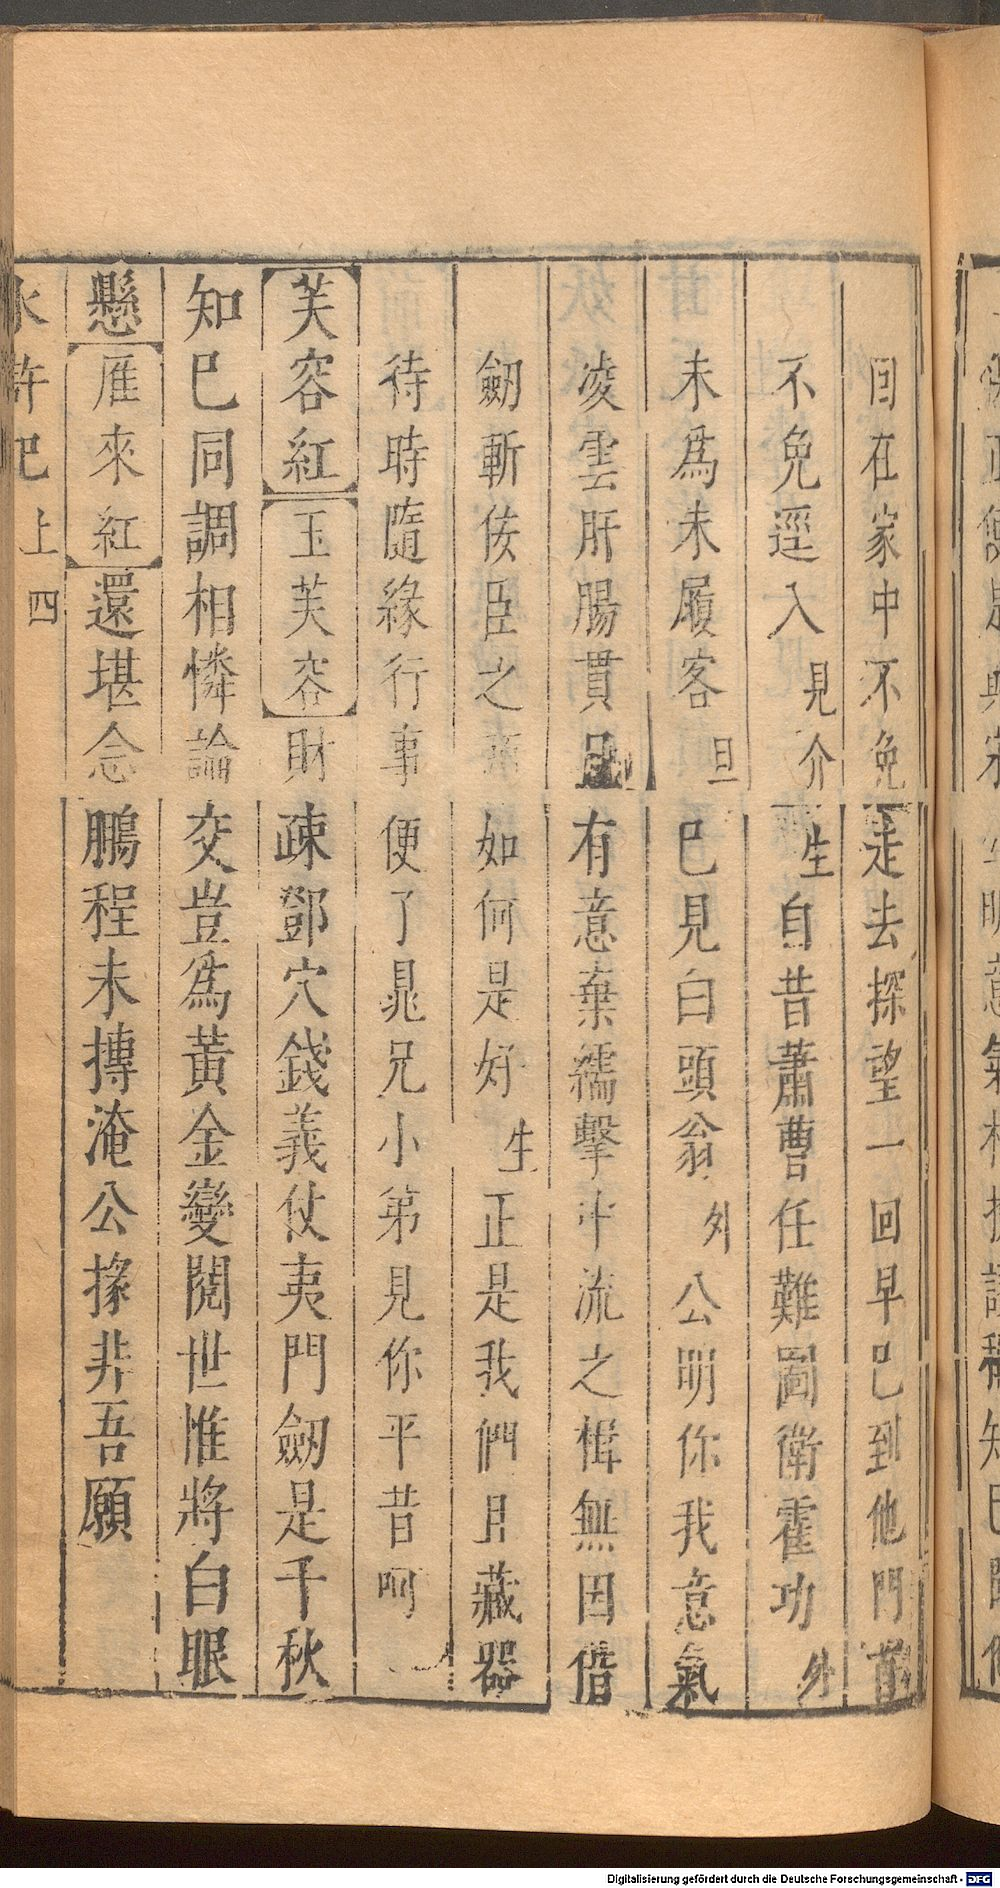 回在家中不免是去探望一回早已到他門首
不免逕入見介生自昔蕭曹任難圖衛霍功外
未爲朱履客旦已見白頭翁外公明你我意氣
凌雲肝腸貫日有意棄繻擊斗流之楫無因借
劒斬佞臣之 如何是好生正是我們且藏器
待時隨緣行事便了晁兄小弟見你平昔呵
芙容紅玉芙容財疎鄧穴錢義仗夷門劒是千秋
知已同調相憐論交豈爲黃金變閱世惟將白眼
懸雁來紅還堪念鵬程未摶淹公掾非吾願
水滸巴上四
Digitalisierung gefördert durch die Deutsche Forschungsgemeinschaft - DFG